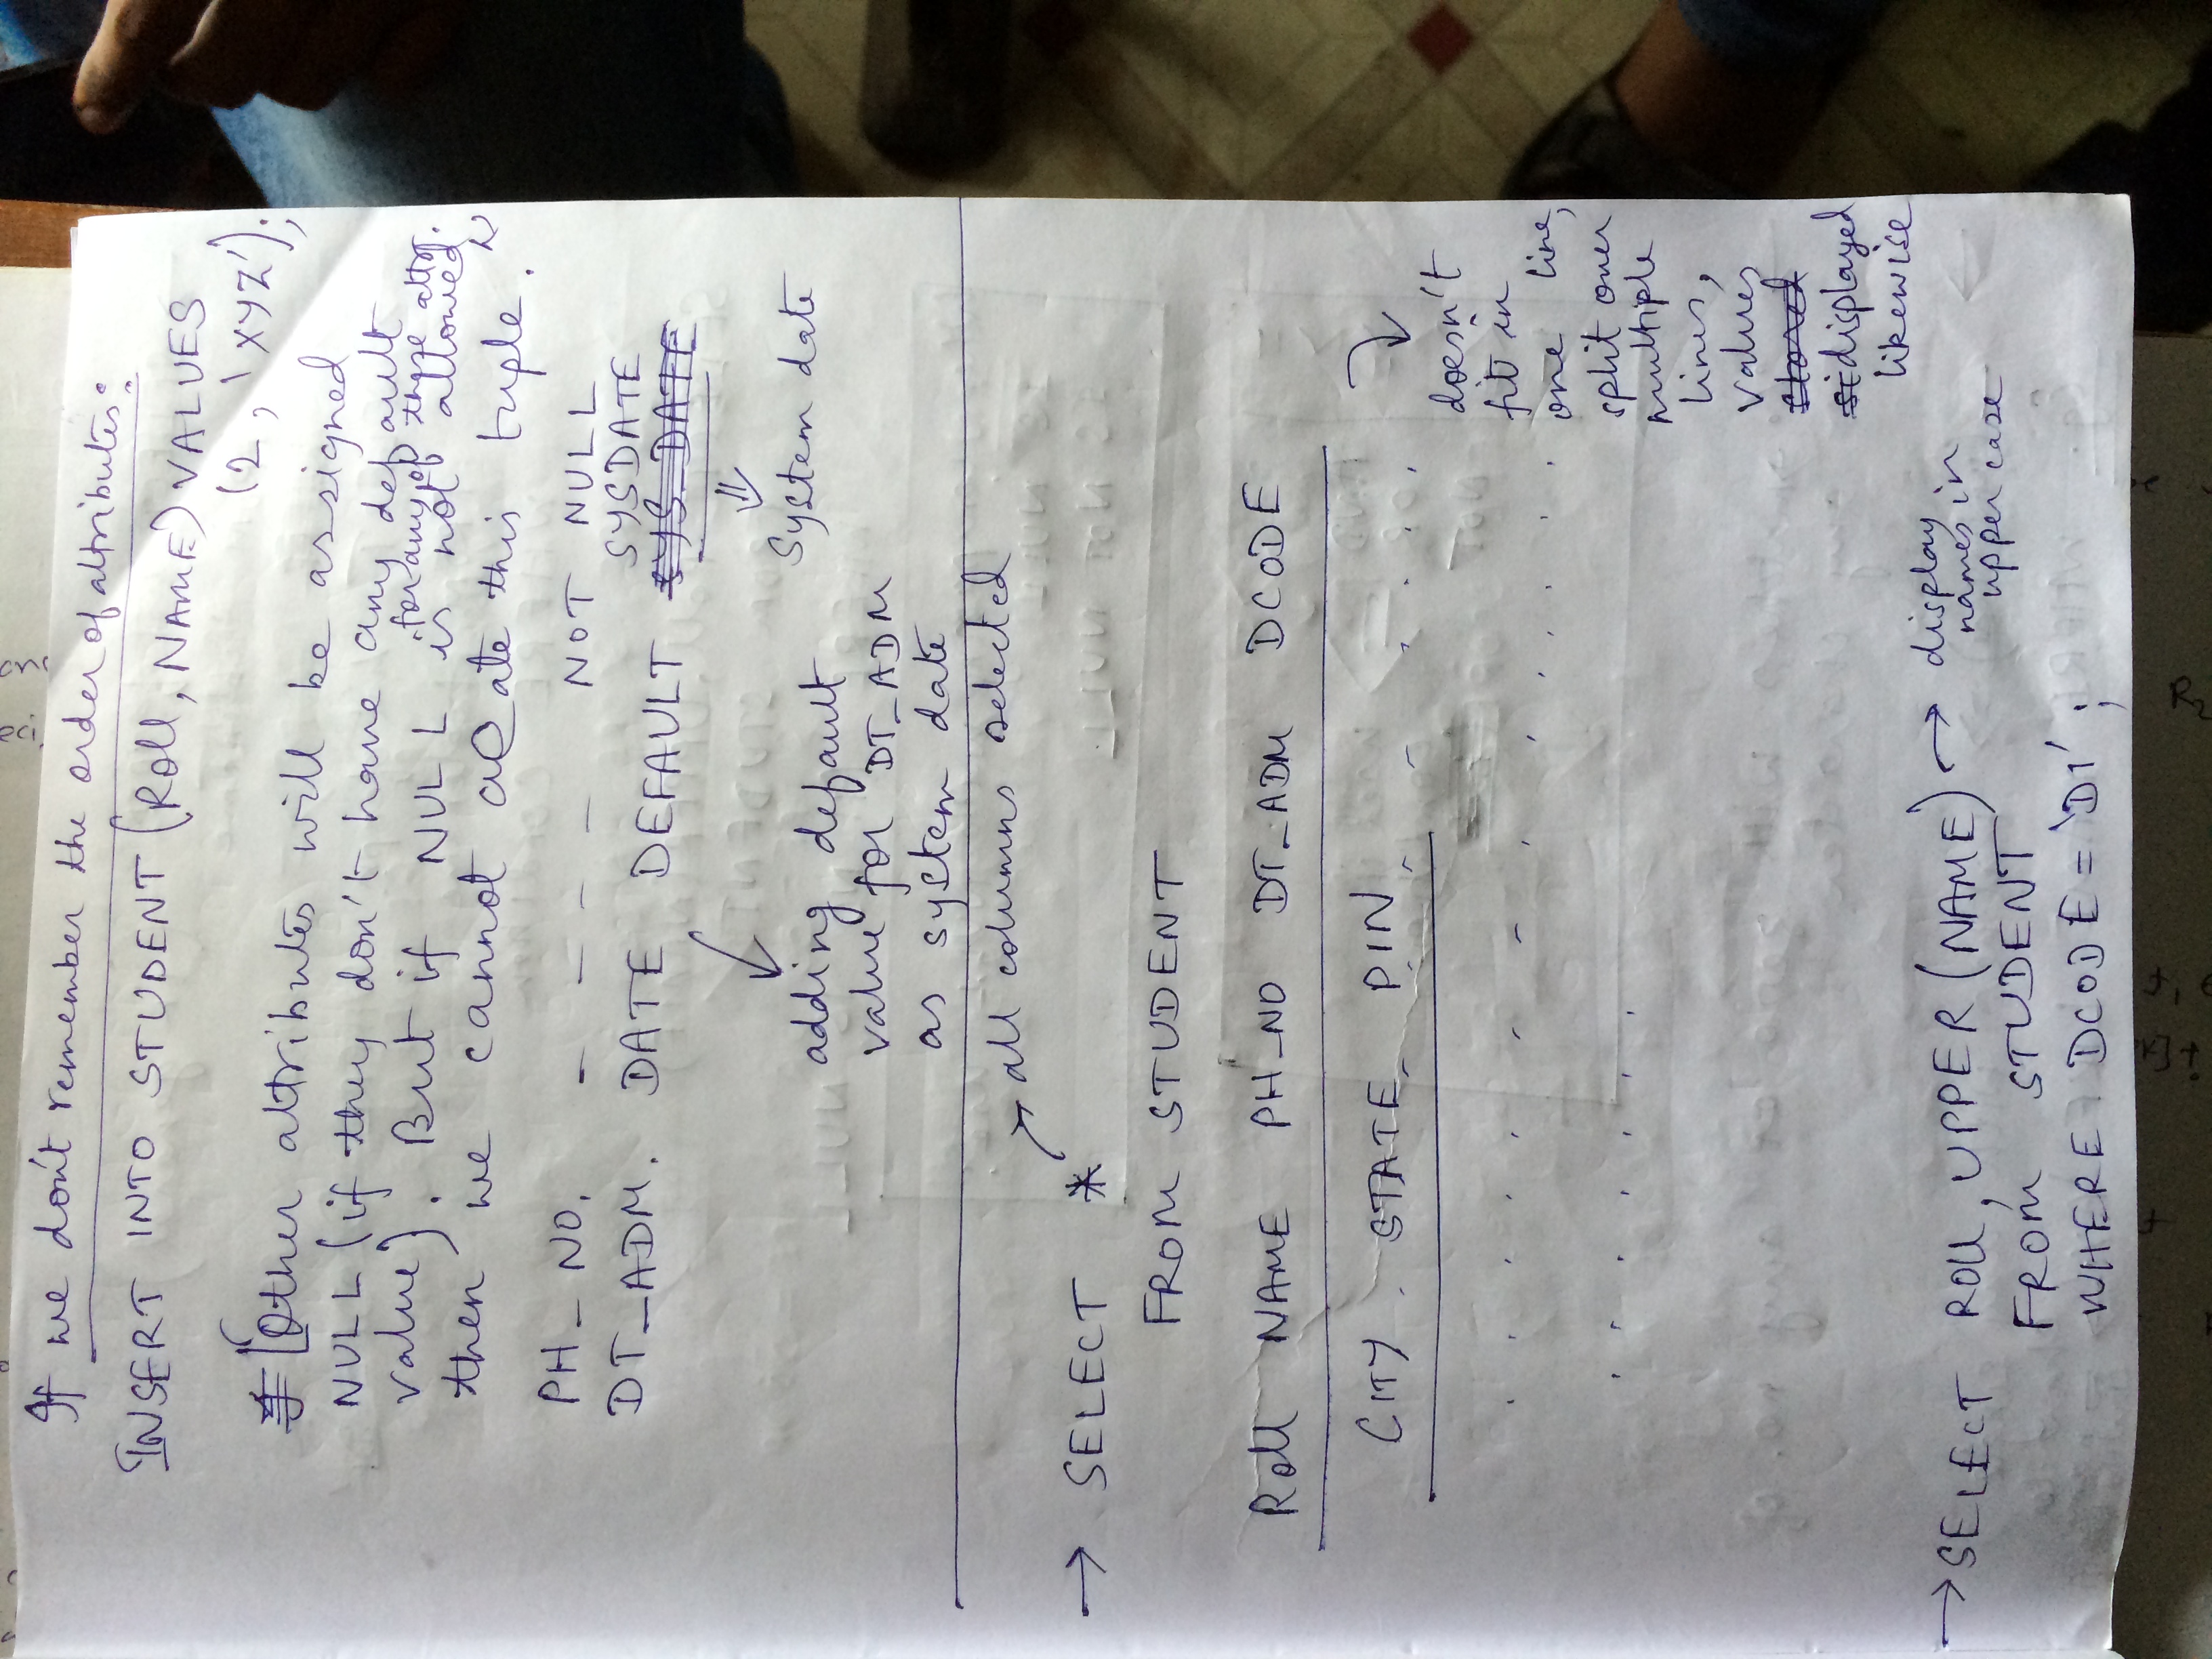 If we don't remember the order of attributes:
INSERT INTO STUDENT (Roll, NAME) VALUES
(2, 'XYZ');
[Other attributes will be assigned
NULL (if they don't have any default
value). But if NULL is not allowed
for any of these attr.
then we cannot create this tuple.
PH_NO. _ _ _ _ NOT NULL
SYSDATE
DT_ADM. DATE DEFAULT SYS_DATE
System date
adding default
value for DT_ADM
as system date
all columns selected
→ SELECT *
FROM STUDENT
Roll NAME PH_NO DT_ADM DCODE
CITY STATE PIN
doesn't
fit in
one line,
split over
multiple
lines,
values
stored
displayed
likewise
→ SELECT Roll, UPPER (NAME) → display
names in
upper case
FROM STUDENT
WHERE DCODE = 'D1' ;